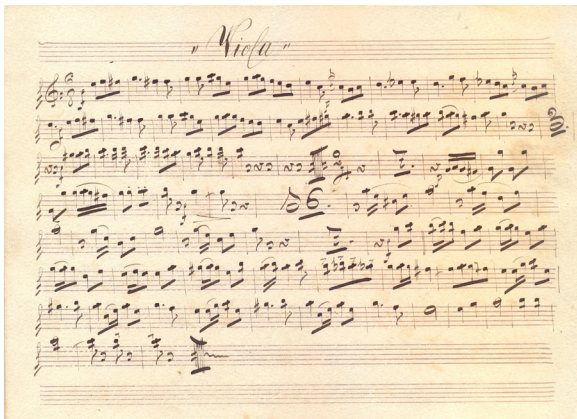 " Viola "